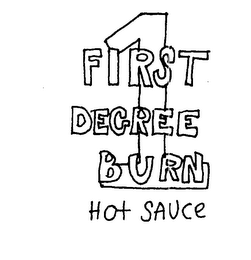 1
FIRST
DEGREE
BURN
Hot SAUCe